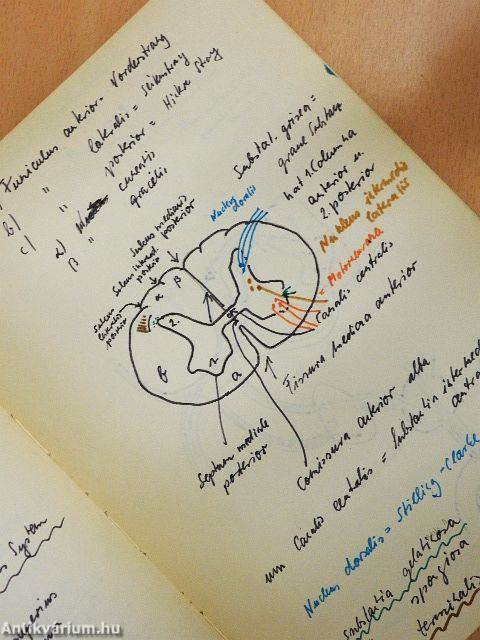 Funiculus anterior = Vorderstrang
b) " lateralis = Seitenstrang
c) " posterior = Hintere Strang
α) cuneatis
β " gracilis
Substat. grisea =
graue Substanz
hat 1. Columna
anterior u
2. posterior
Nucleus intermedio
lateralis
= Motoneurona
Canalis centralis
Fissura mediana anterior
Nucleus
dorsalis
Sulcus medianus
posterior
Sulcus intermed.
posterior
Sulcus
lateralis
posterior
α
β
2.
1.
b
a
Septum mediale
posterior
Comissura anterior alba
um Canalis centralis = Substantia intermed
centra
Nucleus dorsalis = Stilling-Clarke
substatia gelatinosa
spongiosa
terminalis
System
Antikvárium.hu